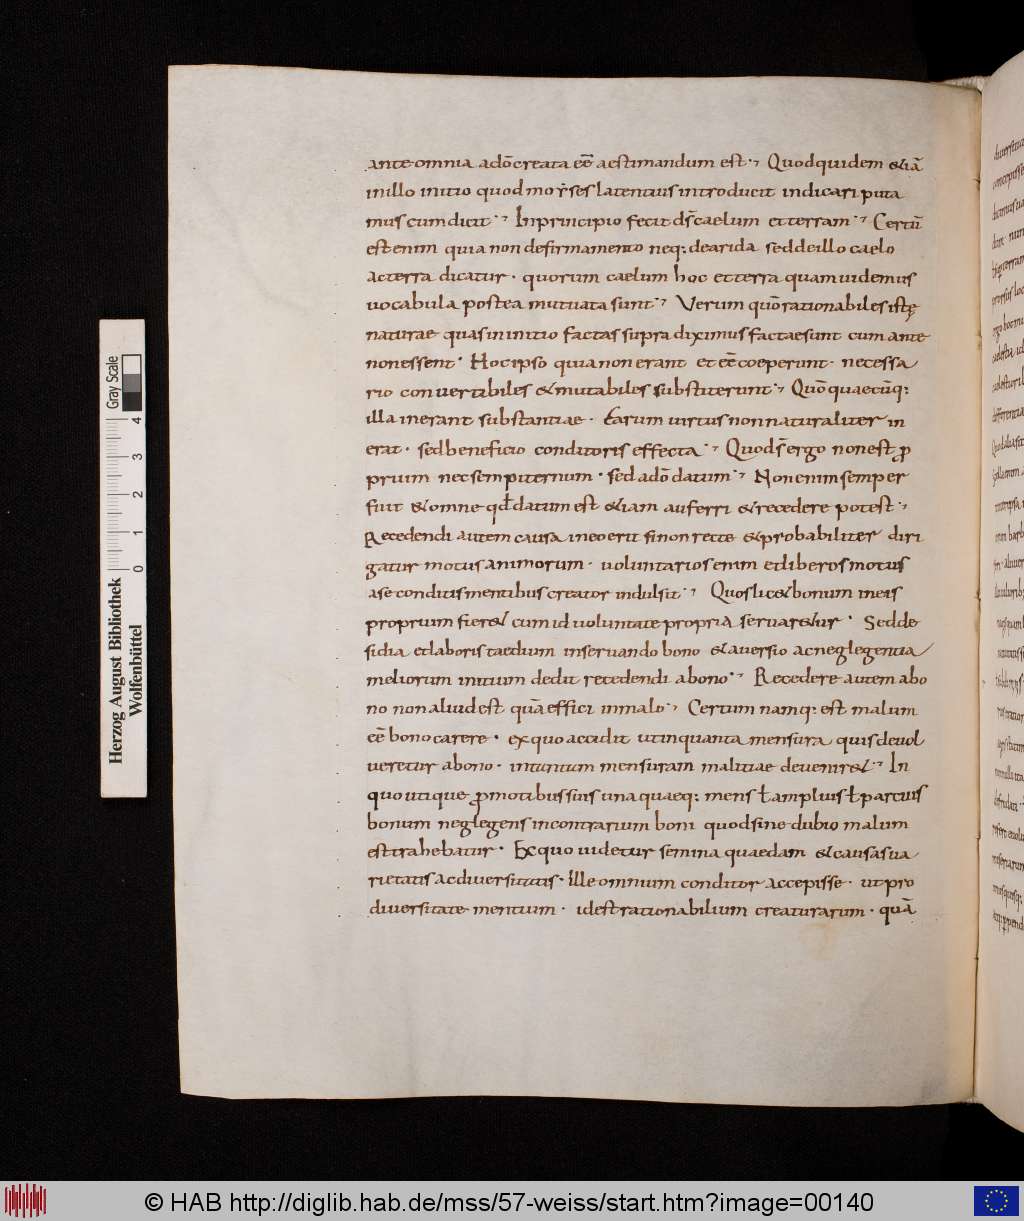 ante omnia a dō creata eē aestimandum est·, Quod quidem &iā
in illo initio quod moy̅ses latentius introducit indicari puta
mus cum dicit·, In principio fecit dˉs caelum et terram·, Certū
est enim quia non de firmamento neq: de arida sed de illo caelo
ac terra dicatur· quorum caelum hoc et terra quam uidemus
uocabula postea mutuata sunt·, Verum quō rationabiles istę
naturae quas in initio factas supra diximus factae sunt cum ante
non essent· Hoc ipso quia non erant et eē coeperunt· necessa
rio conuertibiles & mutabiles substiterunt·, Quō quaecūq:
illa inerant substantiae· Earum uirtus non naturaliter in
erat· sed beneficio conditoris effecta·, Quod sˉ ergo non est ꝓ
prium nec sempiternum· sed a dō datum·, Non enim semper
fuit & omne qđ datum est &iam auferri & recedere potest·,
Recedendi autem causa in eo erit si non recte & probabiliter diri
gatur motus animorum· uoluntarios enim et liberos motus
a se conditis mentibus creator indulsit·, Quo s lic& bonum in eis
proprium fier& cum id uoluntate propria seruar&ur· Sed de
sidia et laboris taedium in seruando bono & auersio ac neglegentia
meliorum initium dedit recedendi a bono·, Recedere autem a bo
no non aliud est quā effici in malo·, Certum namq: est malum
eē bono carere· ex quo accidit ut in quanta mensura quis deuol
ueretur a bono· in tantum mensuram malitiae deuenir&·, In
quo utique ꝓ motibus suis una quaeq: mens ł amplius ł partius
bonum neglegens in contrarium boni quod sine dubio malum
est trahebatur· Ex quo uidetur semina quaedam & causas ua
rietatis ac diuersitatis· Ille omnium conditor accepisse· ut pro
diuersitate mentium· id est rationabilium creaturarum· quā
Herzog August Bibliothek
Wolfenbüttel
0 1 2 3 4
Gray Scale
© HAB http://diglib.hab.de/mss/57-weiss/start.htm?image=00140